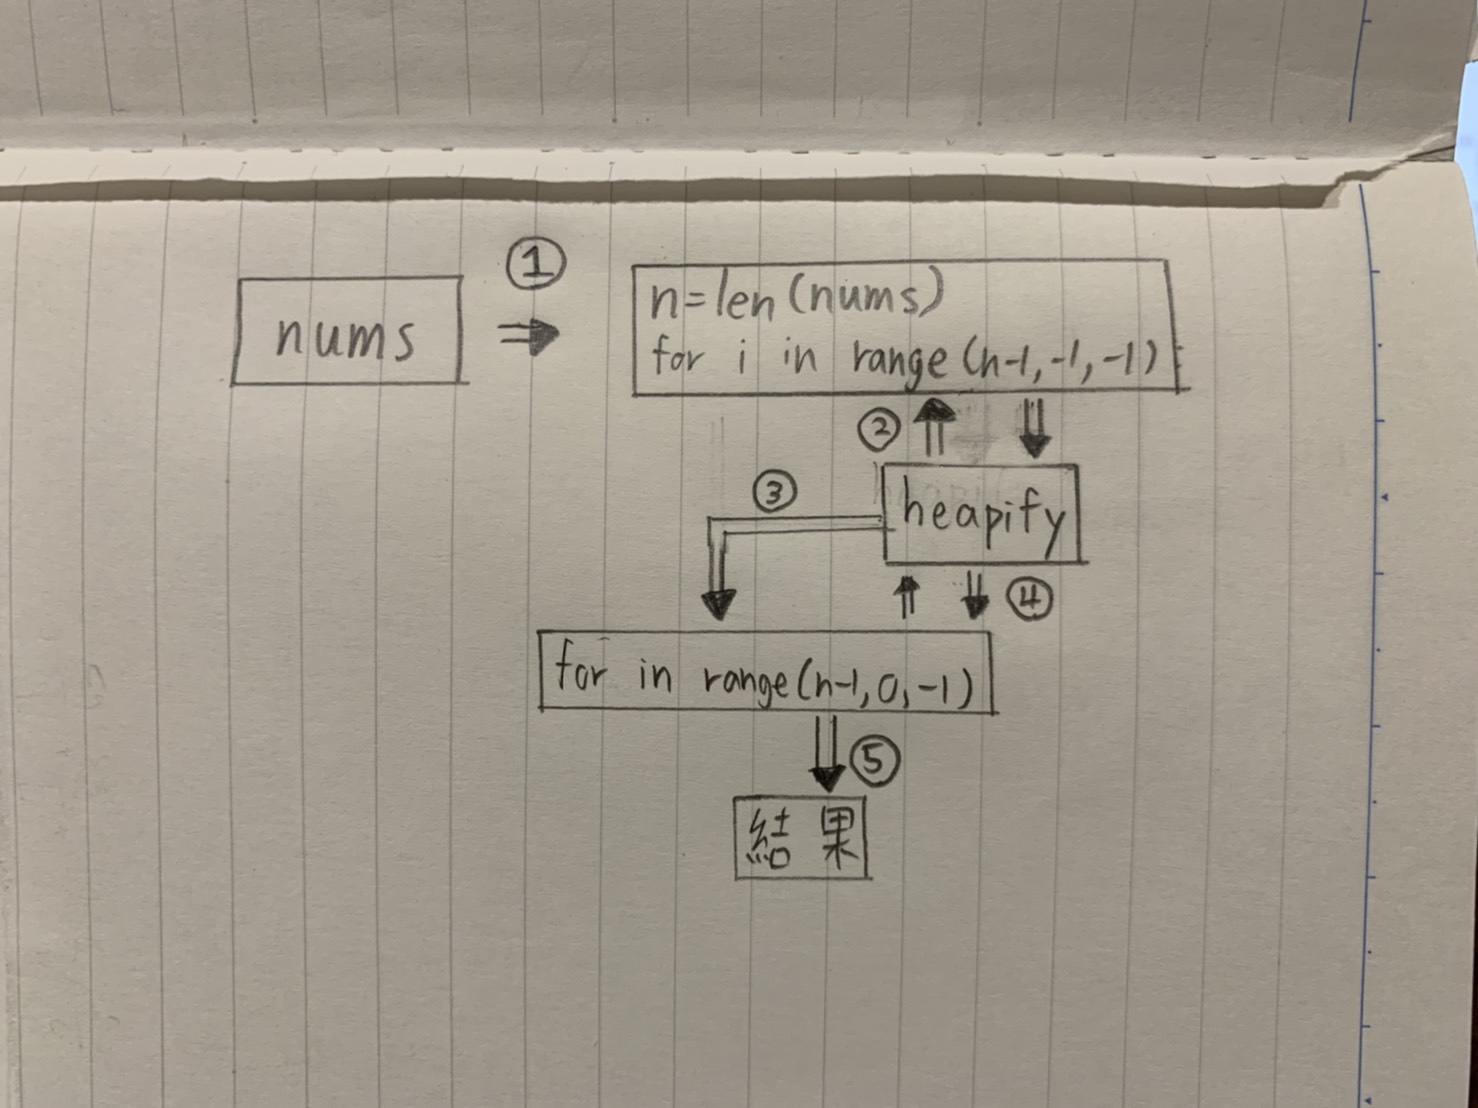 ①
nums
n=len(nums)
for i in range(n-1,-1,-1)
②
③
heapify
④
for in range(n-1,0,-1)
⑤
結果